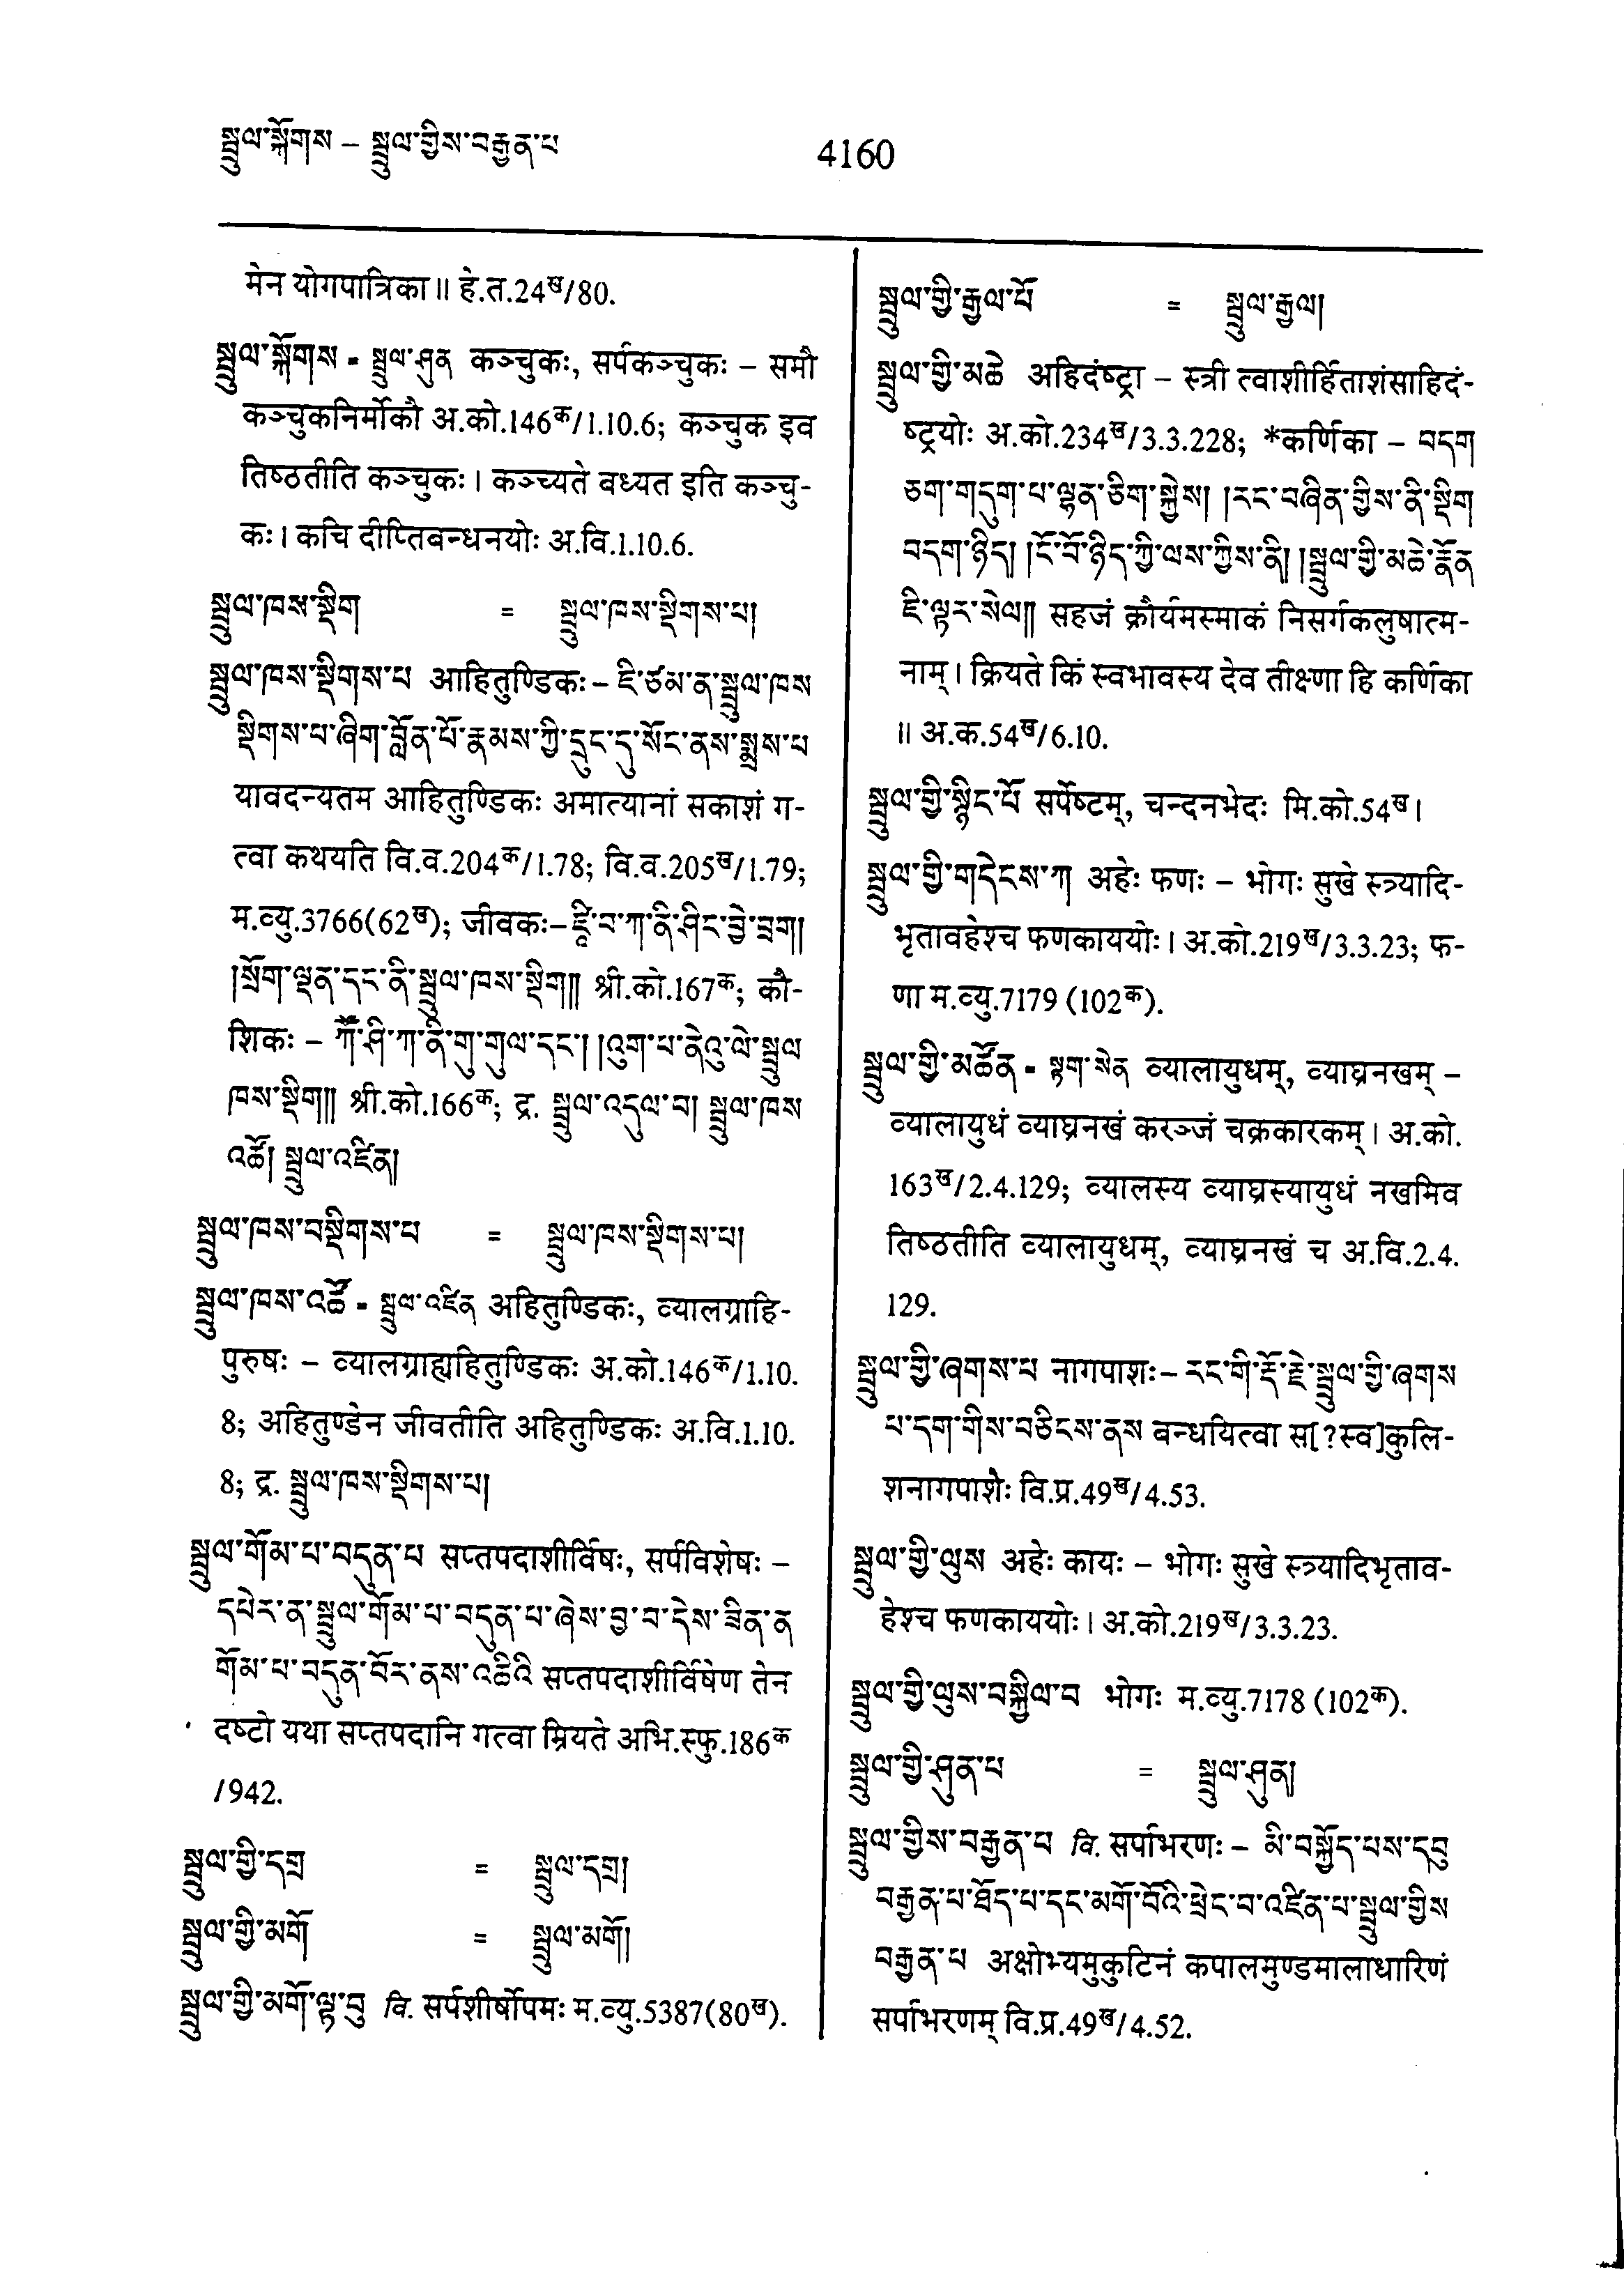 སྦྲུལ་སྐོགས – སྦྲུལ་གྱིས་བརྒྱན་པ
4160
मेन योगपात्रिका॥ हे.त.24ख/80.
སྦྲུལ་སྐོགས = སྦྲུལ་ཤུན कञ्चुकः, सर्पकञ्चुकः – समौ
कञ्चुकनिर्मोकौ अ.को.146क/1.10.6; कञ्चुक इव
तिष्ठतीति कञ्चुकः। कञ्च्यते बध्यत इति कञ्चु-
कः। कचि दीप्तिबन्धनयोः अ.वि.1.10.6.
སྦྲུལ་ཁས་སྡིག = སྦྲུལ་ཁས་སྡིགས་པ།
སྦྲུལ་ཁས་སྡིགས་པ आहितुण्डिकः – ཇི་ཙམ་ན་སྦྲུལ་ཁས
སྡིགས་པ་ཞིག་བློན་པོ་རྣམས་ཀྱི་དྲུང་དུ་སོང་ནས་སྨྲས་པ
यावदन्यतम आहितुण्डिकः अमात्यानां सकाशं ग-
त्वा कथयति वि.व.204क/1.78; वि.व.205ख/1.79;
म.व्यु.3766(62ख); जीवकः – ཛཱི་བ་ཀ་ནི་ཤིང་བྱེ་བྲག།
།སྲོག་ལྡན་དང་ནི་སྦྲུལ་ཁས་སྡིག།། श्री.को.167क; कौ-
शिकः – ཀཽ་ཤི་ཀ་ནི་གུ་གུལ་དང་། །འུག་པ་ནེའུ་ལེ་སྦྲུལ
ཁས་སྡིག།། श्री.को.166क; द्र. སྦྲུལ་འདུལ་བ། སྦྲུལ་ཁས
འཚོ། སྦྲུལ་འཛིན།
སྦྲུལ་ཁས་བསྡིགས་པ = སྦྲུལ་ཁས་སྡིགས་པ།
སྦྲུལ་ཁས་འཚོ = སྦྲུལ་འཛིན अहितुण्डिकः, व्यालग्राहि-
पुरुषः – व्यालग्राह्यहितुण्डिकः अ.को.146क/1.10.
8; अहितुण्डेन जीवतीति अहितुण्डिकः अ.वि.1.10.
8; द्र. སྦྲུལ་ཁས་སྡིགས་པ།
སྦྲུལ་གོམ་པ་བདུན་པ सप्तपदाशीर्विषः, सर्पविशेषः –
དཔེར་ན་སྦྲུལ་གོམ་པ་བདུན་པ་ཞེས་བྱ་བ་དེས་ཟིན་ན
གོམ་པ་བདུན་བོར་ནས་འཆིའི सप्तपदाशीर्विषेण तेन
दष्टो यथा सप्तपदानि गत्वा म्रियते अभि.स्फु.186क
/942.
སྦྲུལ་གྱི་དགྲ = སྦྲུལ་དགྲ།
སྦྲུལ་གྱི་མགོ = སྦྲུལ་མགོ།
སྦྲུལ་གྱི་མགོ་ལྟ་བུ वि. सर्पशीर्षोपमः म.व्यु.5387(80ख).
སྦྲུལ་གྱི་རྒྱལ་པོ = སྦྲུལ་རྒྱལ།
སྦྲུལ་གྱི་མཆེ अहिदंष्ट्रा – स्त्री त्वाशीर्हिताशंसाहिदं-
ष्ट्रयोः अ.को.234ख/3.3.228; *कर्णिका – བདག
ཅག་གདུག་པ་ལྷན་ཅིག་སྐྱེས། །རང་བཞིན་གྱིས་ནི་སྡིག
བདག་ཉིད། །ངོ་བོ་ཉིད་ཀྱི་ལས་ཀྱིས་ནི། །སྦྲུལ་གྱི་མཆེ་རྣོན
ཇི་ལྟར་སེལ།། सहजं क्रौर्यमस्माकं निसर्गकलुषात्म-
नाम्। क्रियते किं स्वभावस्य देव तीक्ष्णा हि कर्णिका
॥ अ.क.54ख/6.10.
སྦྲུལ་གྱི་སྙིང་པོ सर्पेष्टम्, चन्दनभेदः मि.को.54ख।
སྦྲུལ་གྱི་གདེངས་ཀ अहेः फणः – भोगः सुखे स्त्र्यादि-
भृतावहेश्च फणकाययोः। अ.को.219ख/3.3.23; फ-
णा म.व्यु.7179 (102क).
སྦྲུལ་གྱི་མཚོན = སྟག་སེན व्यालायुधम्, व्याघ्रनखम् –
व्यालायुधं व्याघ्रनखं करञ्जं चक्रकारकम्। अ.को.
163ख/2.4.129; व्यालस्य व्याघ्रस्यायुधं नखमिव
तिष्ठतीति व्यालायुधम्, व्याघ्रनखं च अ.वि.2.4.
129.
སྦྲུལ་གྱི་ཞགས་པ नागपाशः – རང་གི་རྡོ་རྗེ་སྦྲུལ་གྱི་ཞགས
པ་དག་གིས་བཅིངས་ནས बन्धयित्वा स[?स्व]कुलि-
शनागपाशैः वि.प्र.49ख/4.53.
སྦྲུལ་གྱི་ལུས अहेः कायः – भोगः सुखे स्त्र्यादिभृताव-
हेश्च फणकाययोः। अ.को.219ख/3.3.23.
སྦྲུལ་གྱི་ལུས་བསྐྱིལ་བ भोगः म.व्यु.7178 (102क).
སྦྲུལ་གྱི་ཤུན་པ = སྦྲུལ་ཤུན།
སྦྲུལ་གྱིས་བརྒྱན་པ वि. सर्पाभरणः – མི་བསྐྱོད་པས་དབུ
བརྒྱན་པ་ཐོད་པ་དང་མགོ་བོའི་ཕྲེང་བ་འཛིན་པ་སྦྲུལ་གྱིས
བརྒྱན་པ अक्षोभ्यमुकुटिनं कपालमुण्डमालाधारिणं
सर्पाभरणम् वि.प्र.49ख/4.52.